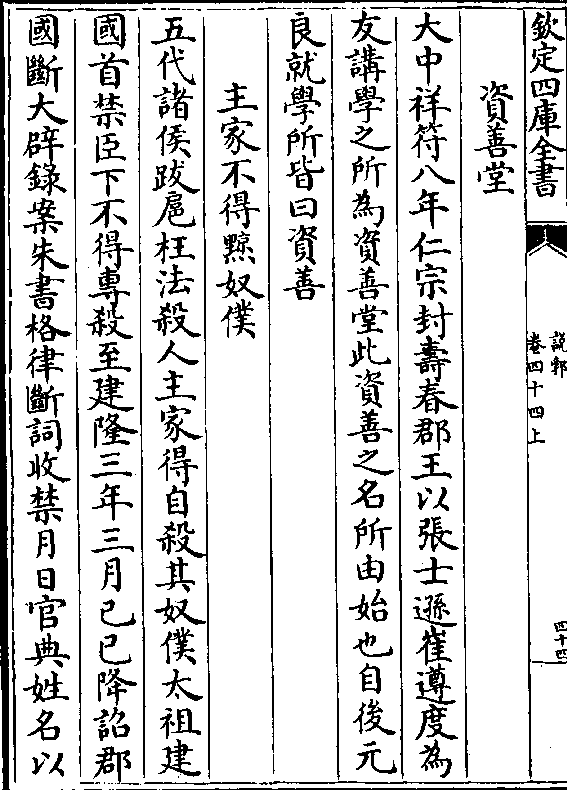 欽定四庫全書
說郛
卷四十四上
四十四
資善堂
大中祥符八年仁宗封壽春郡王以張士遜崔遵度為
友講學之所為資善堂此資善之名所由始也自後元
良就學所皆曰資善
主家不得黥奴僕
五代諸侯跋扈枉法殺人主家得自殺其奴僕太祖建
國首禁臣下不得專殺至建隆三年三月己巳降詔郡
國斷大辟錄案朱書格律斷詞收禁月日官典姓名以